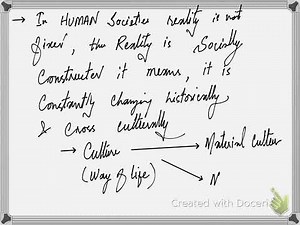 → In HUMAN Societies reality is not
fixed, the Reality is Socially
Constructed it means, it is
Constantly changing historically
& cross culturally
→ Culture → Material culture
(Way of life) N
Created with Doceri